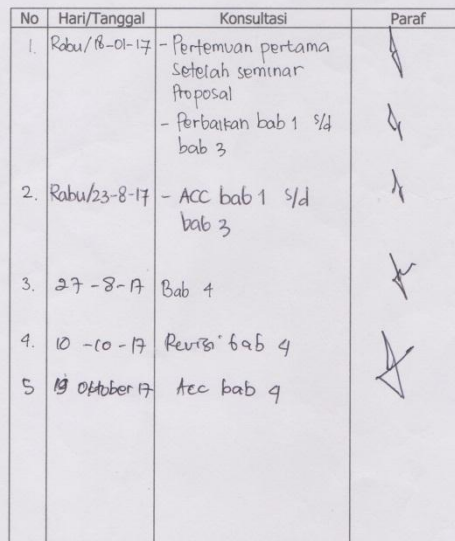 No Hari/Tanggal Konsultasi Paraf
1. Rabu/18-01-17 - Pertemuan pertama
setelah seminar
Proposal
- Perbaikan bab 1 s/d
bab 3
2. Rabu/23-8-17 - ACC bab 1 s/d
bab 3
3. 27-8-17 Bab 4
4. 10-10-17 Revisi bab 4
5 19 Oktober 17 Acc bab 4